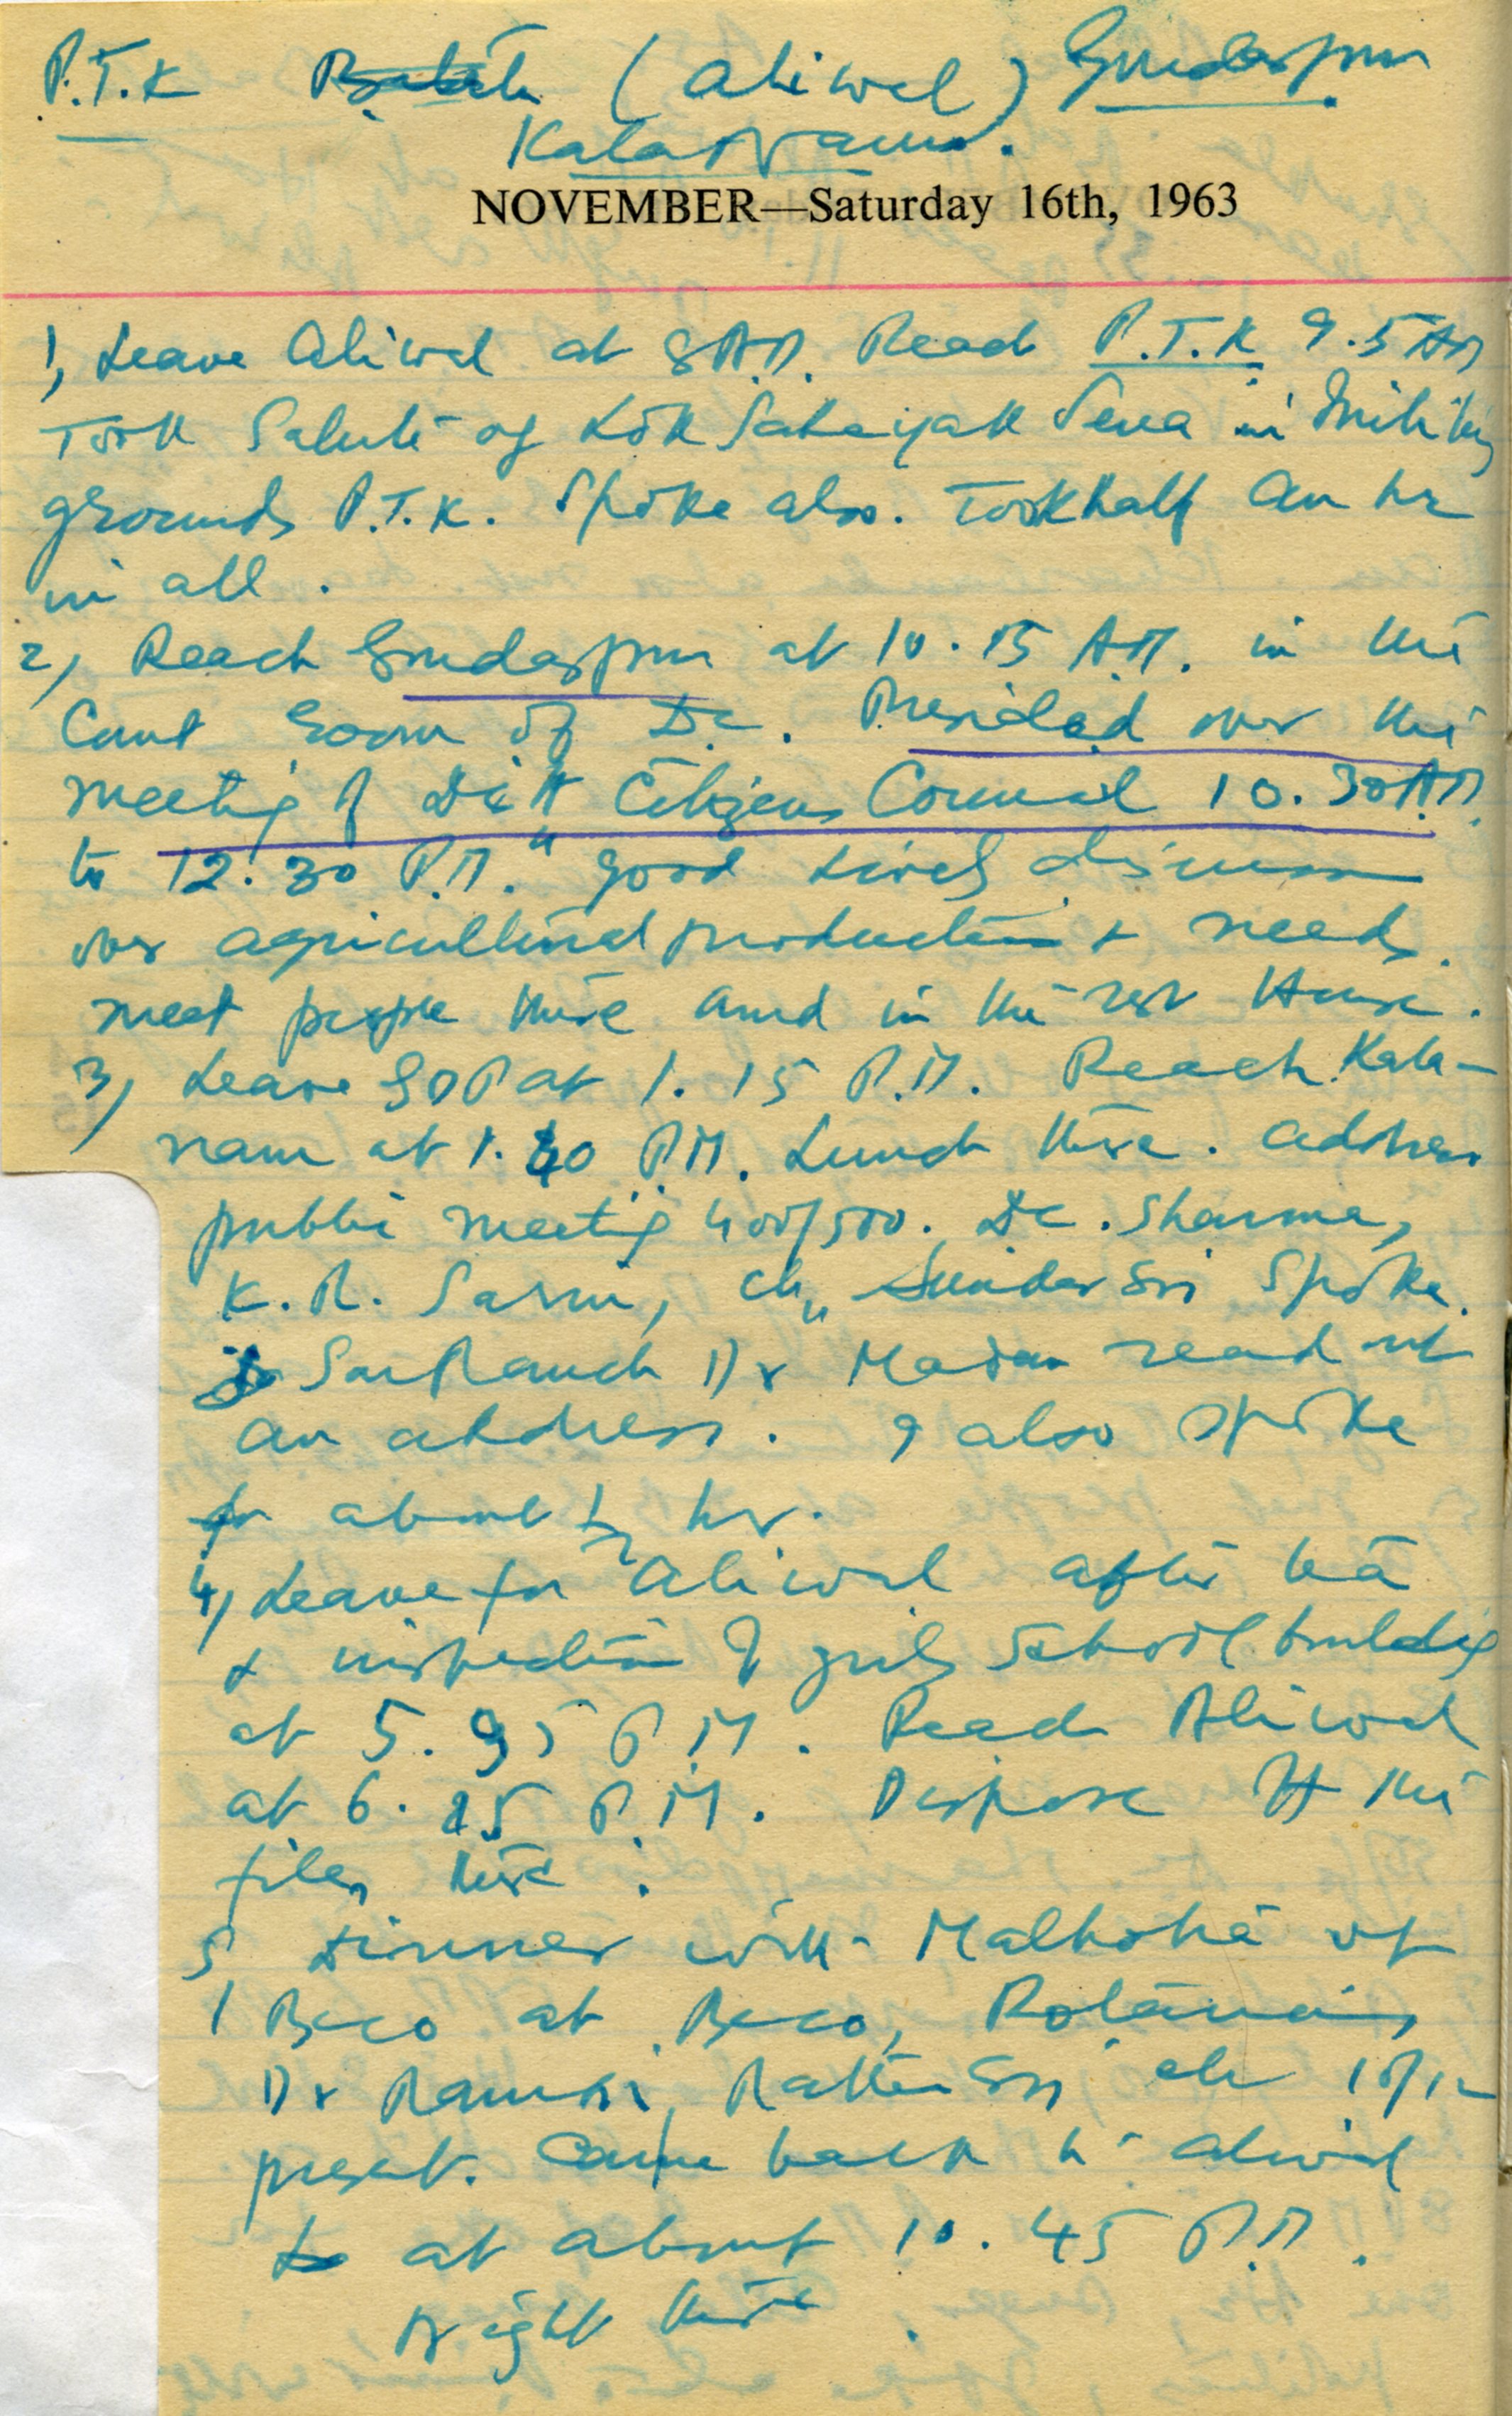 P.T.K Batala (Aliwal) Gurdaspur
Kalanaur.
NOVEMBER—Saturday 16th, 1963
1, Leave Aliwal at 8 A.M. Reach P.T.K 9.5 AM
Took Salute of Lok Sahayak Sena in Military
grounds P.T.K. Spoke also. Took half an hr
in all.
2, Reach Gurdaspur at 10.15 A.M. in the
Court room of D.C. Presided over the
meeting of Distt Citizens Council 10.30 A.M.
to 12.30 P.M. good lively discussion
over agricultural production & needs.
meet people there and in the rest House.
3, Leave GDP at 1.15 P.M. Reach Kala-
naur at 1.40 P.M. Lunch there. address
public meeting 400/500. D.C. Sharma,
K.R. Ch, Sunder Spoke.
Sarpanch Dr Madan read out
an address. I also spoke
for about ½ hr.
4, Leave for Aliwal after tea
& inspection of girls School building
at 5. P.M. Reach Aliwal
at 6. P.M. Dispose of the
files here.
5 Dinner with Malhotra of
Beco at Beco, Rotarians,
Dr Rattan 10/12
present. Came back to Aliwal
at about 10.45 P.M.
Night here.